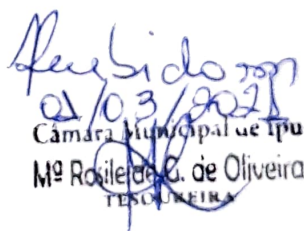 Recebido em
01/03/2021
Câmara Municipal de Ipu
Mª Rosileide G. de Oliveira
TESOUREIRA